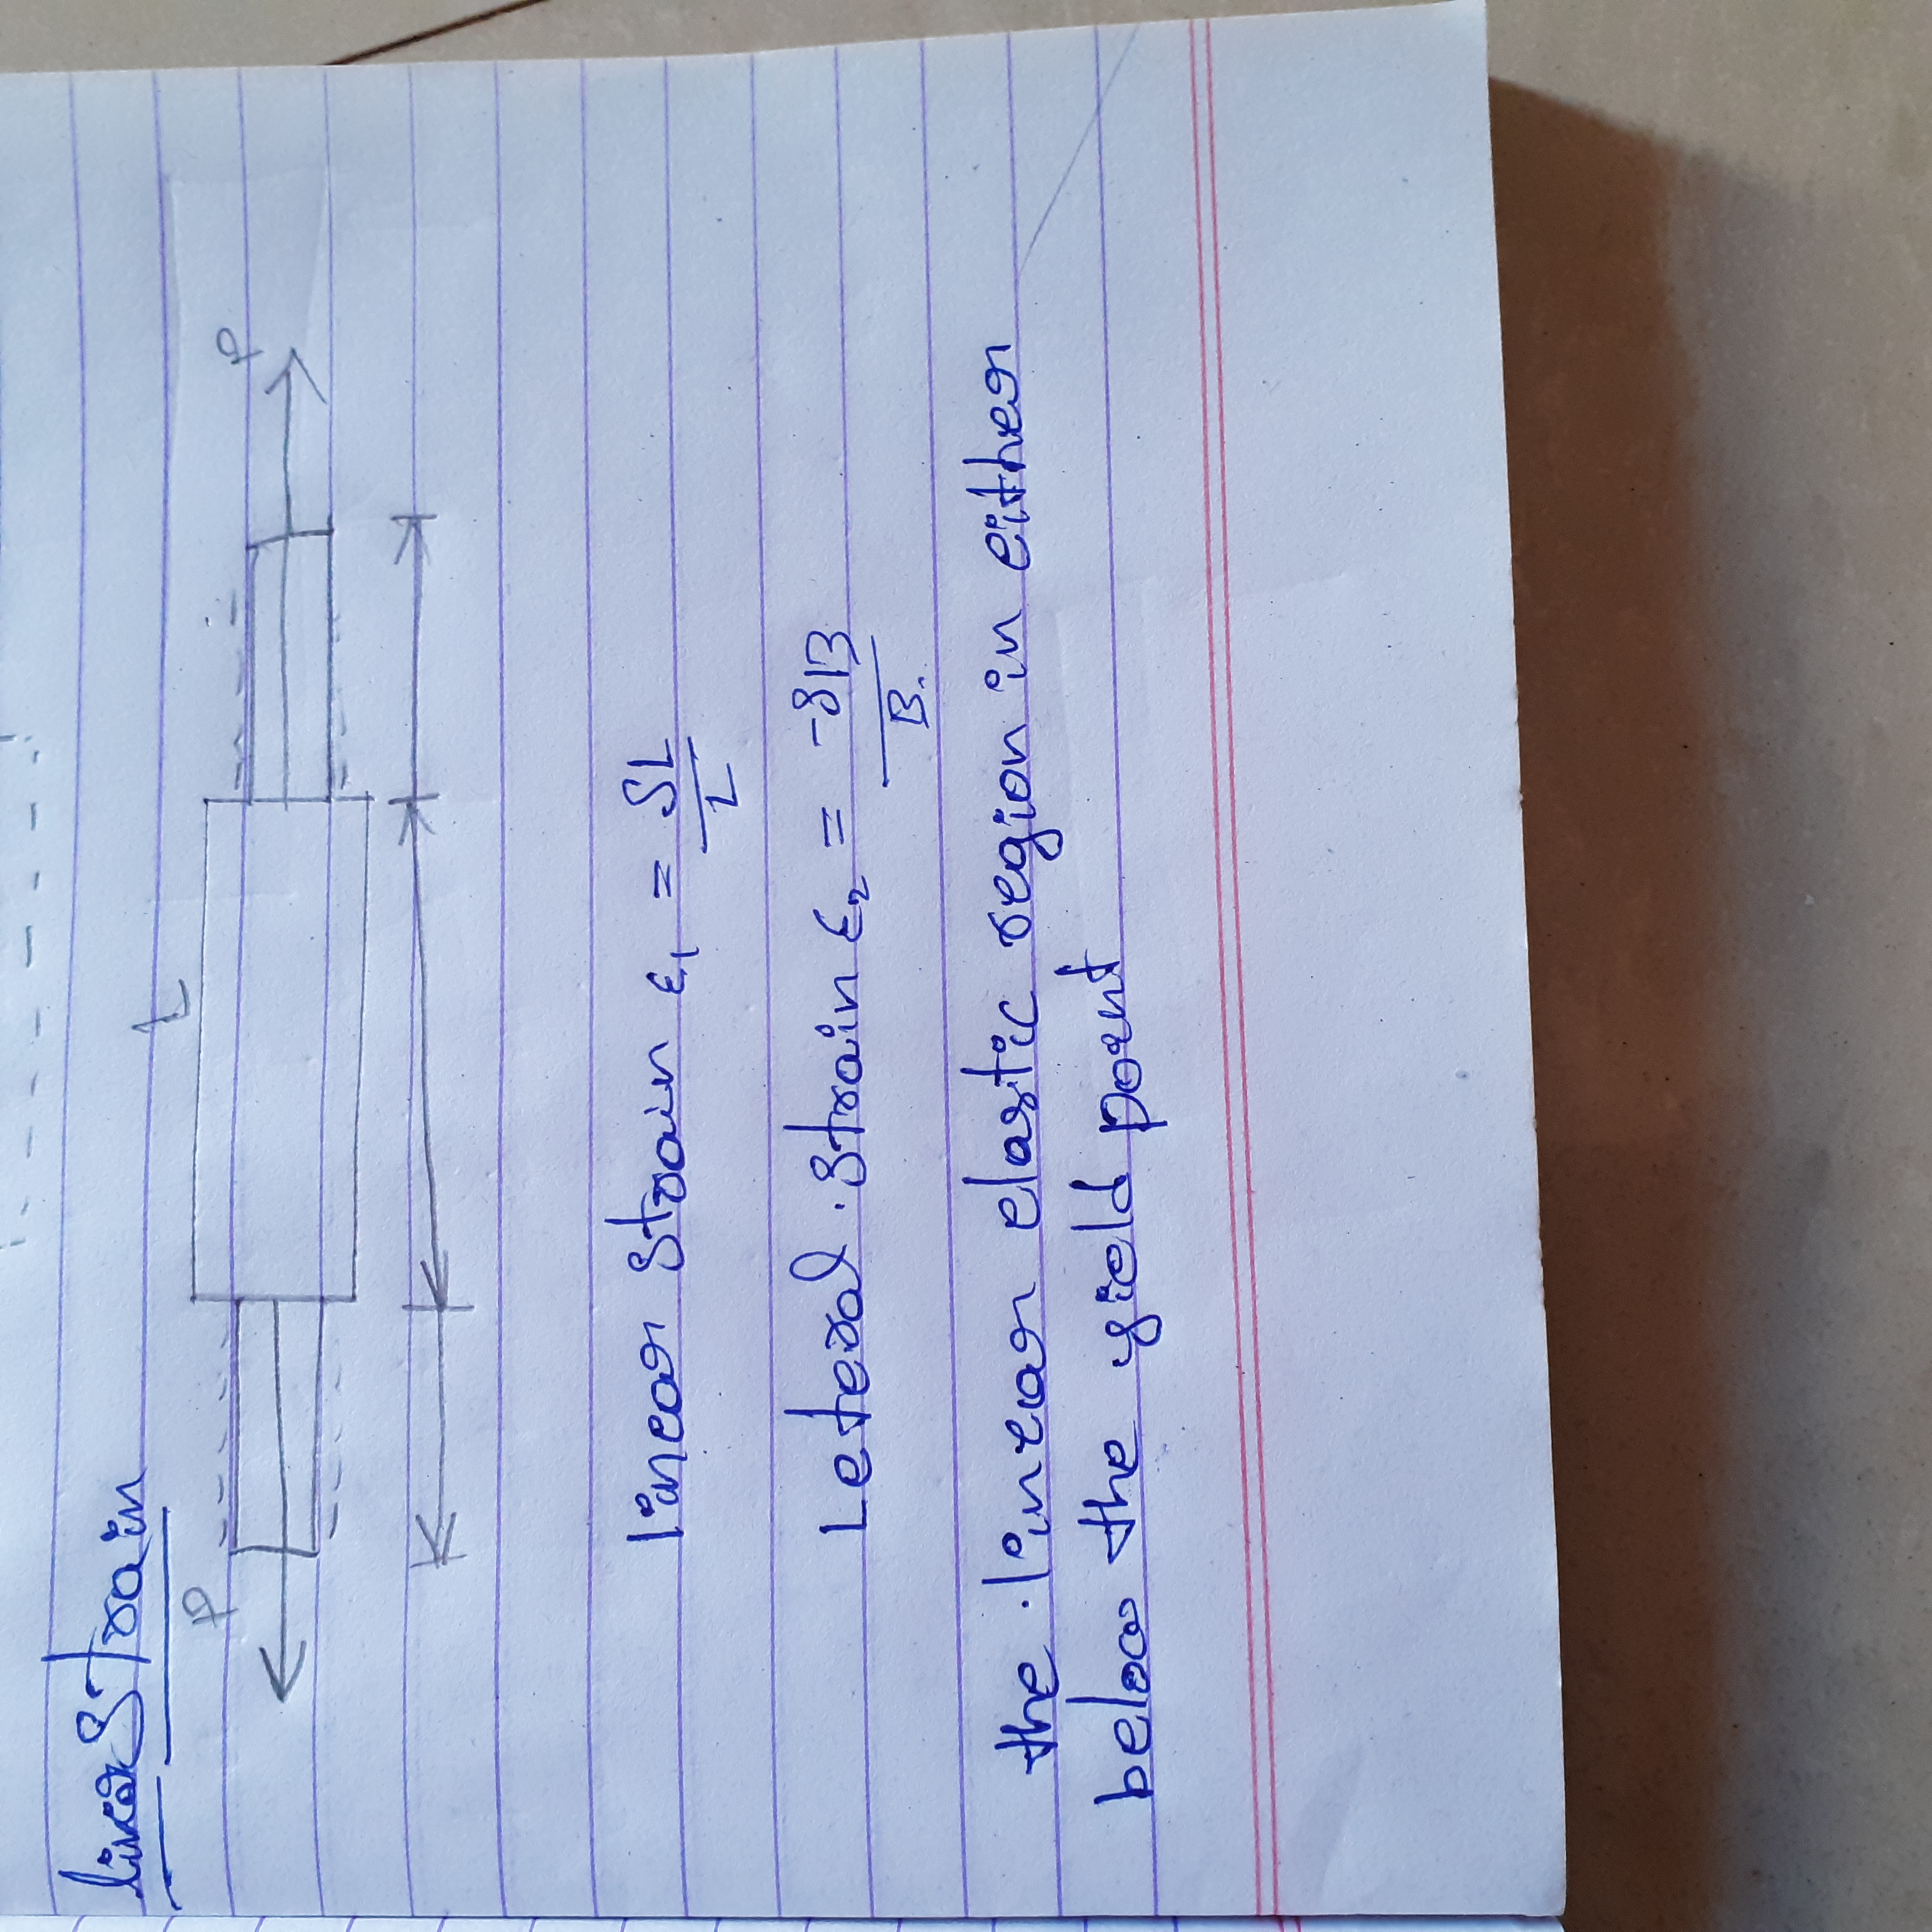 linear Strain
L
P
P
linear strain ε₁ = δL
L
Leteral strain ε₂ = -δB
B
the linear elastic region in either
below the yield point